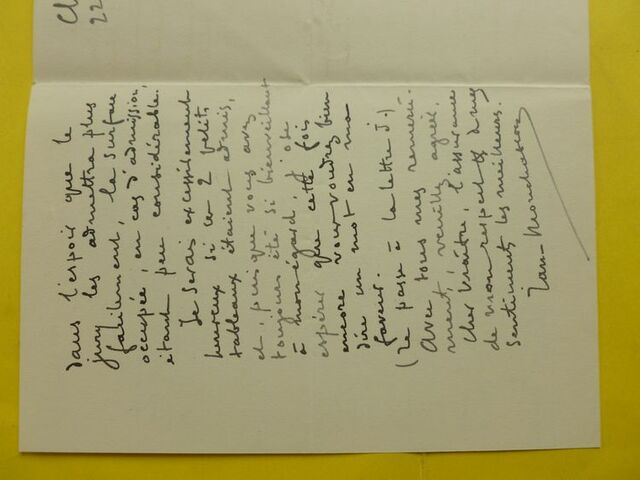 Ch
22
dans l'espoir que le
jury les admettra plus
facilement, la surface
occupée, en cas d'admission,
étant peu considérable.
Je serais excessivement
heureux si ces 2 petits
tableaux étaient admis,
et, puisque vous avez
toujours été si bienveillant
à mon égard, j'ose
espérer que cette fois
encore vous voudrez bien
dire un mot en ma
faveur.
(Je passe à la lettre J.)
Avec tous mes remercie-
ments, veuillez agréer,
cher Maître, l'assurance
de mon respect & de mes
sentiments les meilleurs.